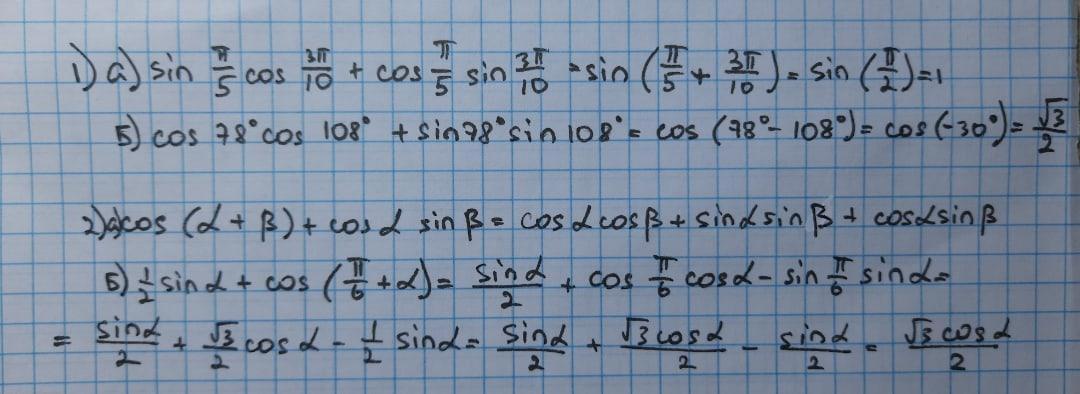 1) а) sin π/5 cos 3π/10 + cos π/5 sin 3π/10 = sin (π/5 + 3π/10) = sin (π/2) = 1
Б) cos 78° cos 108° + sin 78° sin 108° = cos (78° - 108°) = cos (-30°) = √3/2
2) а) cos (α + β) + cos α sin β = cos α cos β + sin α sin β + cos α sin β
Б) 1/2 sin α + cos (π/6 + α) = sin α/2 + cos π/6 cos α - sin π/6 sin α =
= sin α/2 + √3/2 cos α - 1/2 sin α = sin α/2 + √3 cos α/2 - sin α/2 = √3 cos α/2